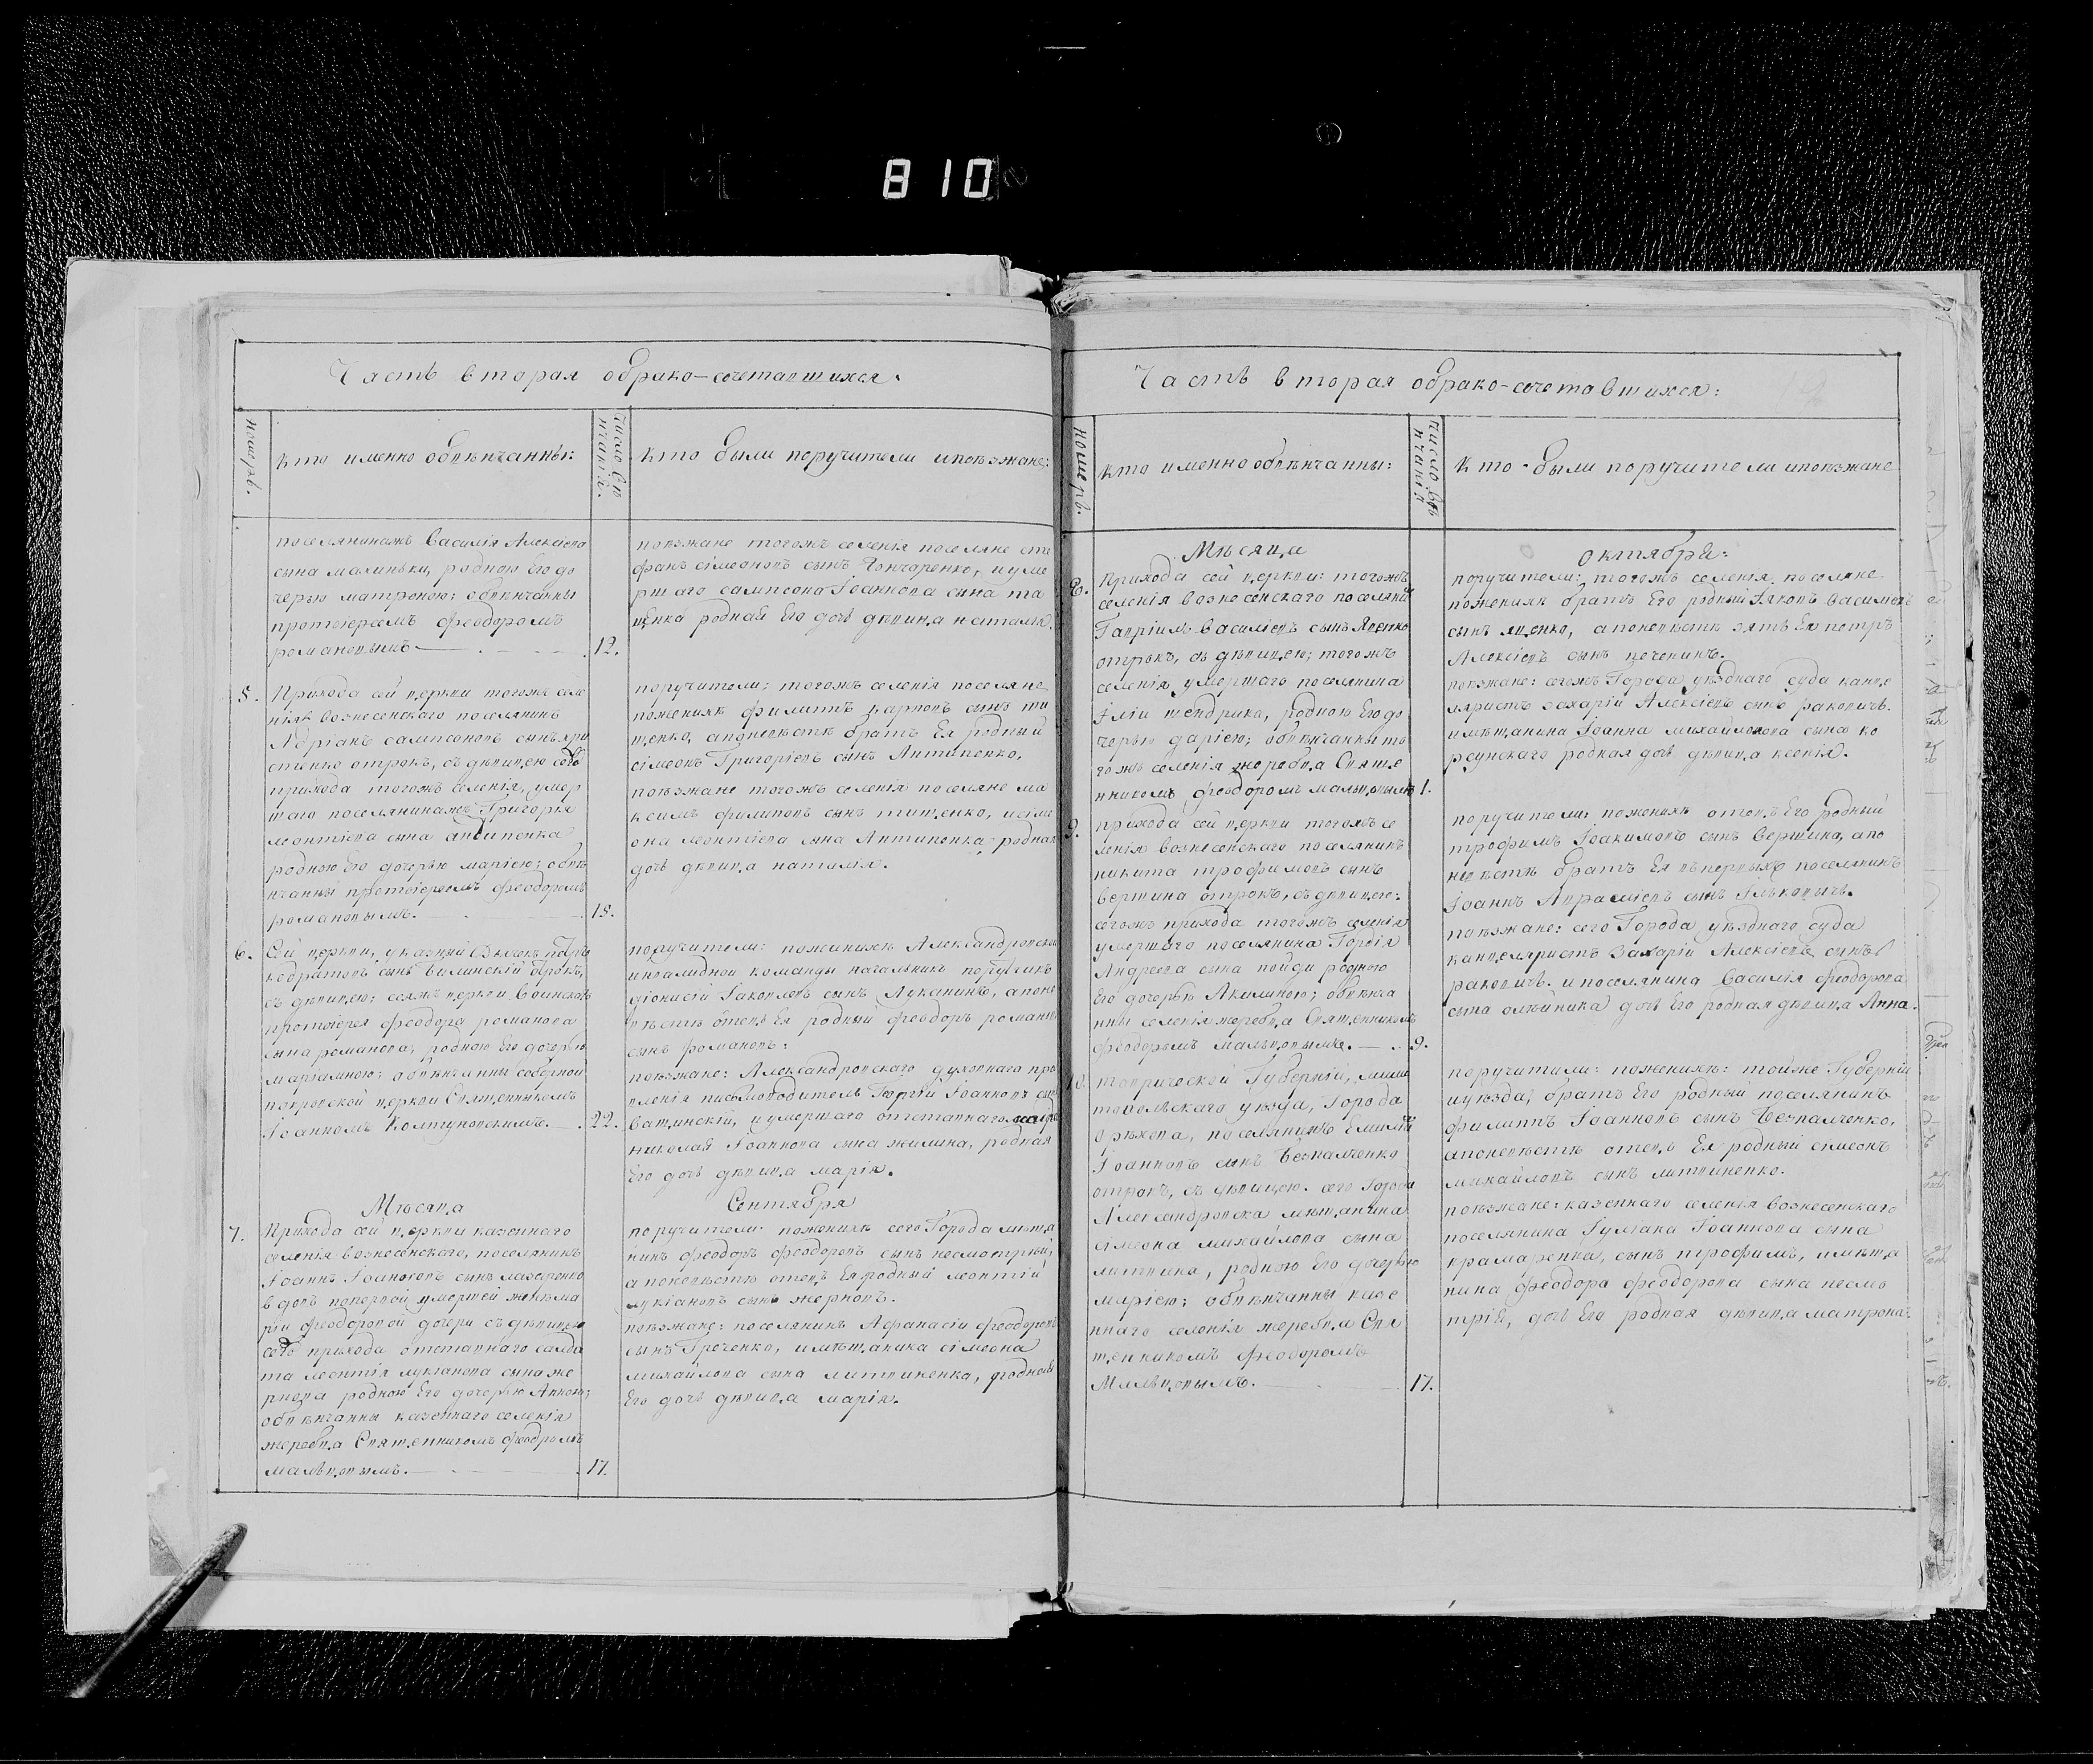 810
Часть вторая обрако-сочетавшихся.
номеръ.
кто именно обвѣнчанны:
число вѣнчанія.
кто были поручители ипоѣзжане:
поселянинажъ Василія Алексѣева
сына махиньки, родною Его до
черью матроною; обвѣнчанны
протоіереемъ Феодоромъ
романовымъ 12.
поѣзжане тогожъ селенія поселяне сте
фанъ сімеоновъ сынъ Гончаренко, иуме
ршаго сампсона Іоаннова сына
родная Его дочь дѣвица наталія.
5. Прихода сей церкви тогожъ селе
нія вознесенскаго поселянинъ
Адріанъ сампсоновъ сынъ хри
стенко отрокъ, съ дѣвицею
прихода тогожъ селенія, умер
шаго поселянинажъ Григорія
леонтіева сына антипенка
родною Его дочерью маріею; обвѣ
нчанны протоіереемъ Феодоромъ
романовымъ. 15.
поручители: тогожъ селенія поселяне
поженихѣ филиппъ карповъ сынъ ти
щенко, апоневѣстѣ братъ Ея родный
сімеонъ Григоріевъ сынъ Антипенко,
поѣзжане тогожъ селенія поселяне ма
ксимъ филиповъ сынъ тищенко, исіме
она леонтіева сына Антипенка родная
дочь дѣвица наталія.
6. Сей церкви, указный Дьячокъ
сынъ Билинскій отрокъ,
съ дѣвицею; сеяжъ церкви
протоіерея Феодора романова
сына романова, родною Его дочерью
маріамною; обвѣнчанны соборной
покровской церкви Священникомъ
Іоанномъ Колтуновскимъ. 22.
поручители: поженихѣ Александровской
инвалидной команды начальникъ поручикъ
діонисій Іаковлевъ сынъ Луканинъ, апоне
вѣстѣ отецъ Ея родный Феодоръ романовъ
сынъ романовъ:
поѣзжане: Александровскаго духовнаго пра
вленія письмоводитель Георгій Іоанновъ сынъ
иумершаго отставнаго
николая Іоаннова сына жилина, родная
Его дочь дѣвица марія.
Мѣсяца
Сентября
7. Прихода сей церкви казеннаго
селенія вознесенскаго, поселянинъ
Іоаннъ Іоанновъ сынъ мазаренко
вдовъ поперпой умершей женѣ ма
ріи феодоровой дочери съ дѣвицею
прихода отставнаго салда
та леонтія лукіанова сына же
рнова родною Его дочерью Анною;
обвѣнчанны казеннаго селенія
жеребца Священникомъ Феодоромъ
мальцовымъ. 17.
поручители поженихѣ сего Города мѣща
нинъ Феодоръ Феодоровъ сынъ несмотрный,
апоневѣстѣ отецъ Ея родный леонтій
лукіановъ сынъ жерновъ.
поѣзжане: поселянинъ Афанасій Феодоровъ
сынъ Гречко, имѣщанина сімеона
михайлова сына литвиненка, родная
Его дочь дѣвица марія.
Часть вторая обрако-сочетавшихся:
номеръ.
кто именно обвѣнчанны:
число вѣнчанія
Кто были поручители ипоѣзжане
Мѣсяца
октября:
8. Прихода сей церкви: тогожъ
селенія вознесенскаго поселянинъ
Гавріилъ Василіевъ сынъ Яценко
отрокъ, съ дѣвицею; тогожъ
селенія умершаго поселянина
Іліи шендрика, родною Его до
черью даріею; обвѣнчанны то
гожъ селенія жеребца Свяще
нникомъ Феодоромъ мальцовымъ 1.
поручители: тогожъ селенія поселяне
поженихѣ братъ Его родный Іаковъ Василіевъ
сынъ яценко, апоневѣстѣ зять Ея петръ
Алексіевъ сынъ печенинъ.
поѣзжане: сегожъ Города уѣзднаго суда канце
ляристъ захарій Алексіевъ сынъ раковичъ.
имѣщанина Іоанна михайлова сына ко
рсунскаго родная дочь дѣвица ксенія.
9. прихода сей церкви тогожъ се
ленія вознесенскаго поселянинъ
никита трофимовъ сынъ
вершина отрокъ, съ дѣвицею:
сегожъ прихода тогожъ селенія
умершаго поселянина Гордія
Андреева сына пойди родною
Его дочерью Акилиною; обвѣнча
нны селенія жеребца Священникомъ
Феодоромъ мальцовымъ. 9.
поручители: поженихѣ отецъ Его родный
трофимъ Іоакимовъ сынъ Вершина, апо
невѣстѣ братъ Ея поселянинъ
Іоаннъ сынъ
поѣзжане: сего Города уѣзднаго суда
канцеляристъ Захарій Алексіевъ сынъ
раковичъ. ипоселянина Василія Феодорова
сына олѣйника дочь Его родная дѣвица Анна.
10. таврической Губерніи, мели
топольскаго уѣзда, Города
орѣхова, поселянинъ Емиліанъ
Іоанновъ сынъ Безпалченко
отрокъ, съ дѣвицею. сего Города
Александровска мѣщанина
сімеона михайлова сына
литвина, родною Его дочерью
маріею; обвѣнчанны казе
ннаго селенія жеребца Свя
щенникомъ Феодоромъ
Мальцовымъ. 17.
поручители: поженихѣ: тойже Губерніи
иуѣзда, братъ Его родный поселянинъ
филиппъ Іоанновъ сынъ Безпалченко,
апоневѣстѣ отецъ Ея родный сімеонъ
михайловъ сынъ литвиненко.
поѣзжане: казеннаго селенія вознесенскаго
поселянина Іуліана Іоаннова сына
крамаренка, сынъ трофимъ, имѣща
нина Феодора Феодорова сына несмо
трія, дочь Его родная дѣвица матрона.